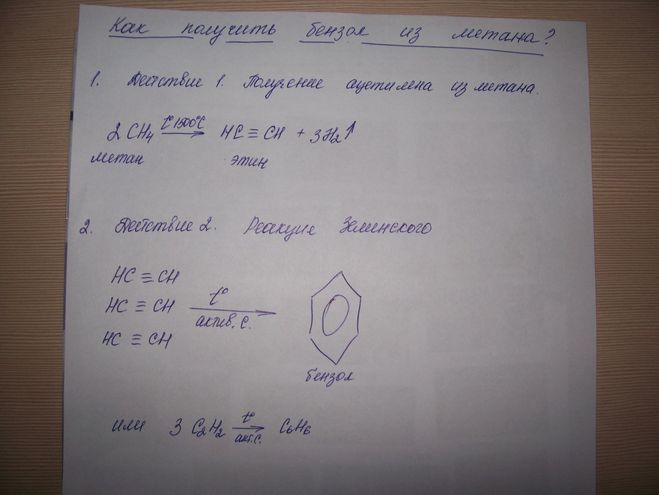 Как получить бензол из метана?
1. Действие 1. Получение ацетилена из метана.
2 CH₄ t° 1500°C → HC ≡ CH + 3H₂↑
метан этин
2. Действие 2. Реакция Зелинского
HC ≡ CH
HC ≡ CH t° → актив. C.
HC ≡ CH
бензол
или 3 C₂H₂ t° → акт. C. C₆H₆